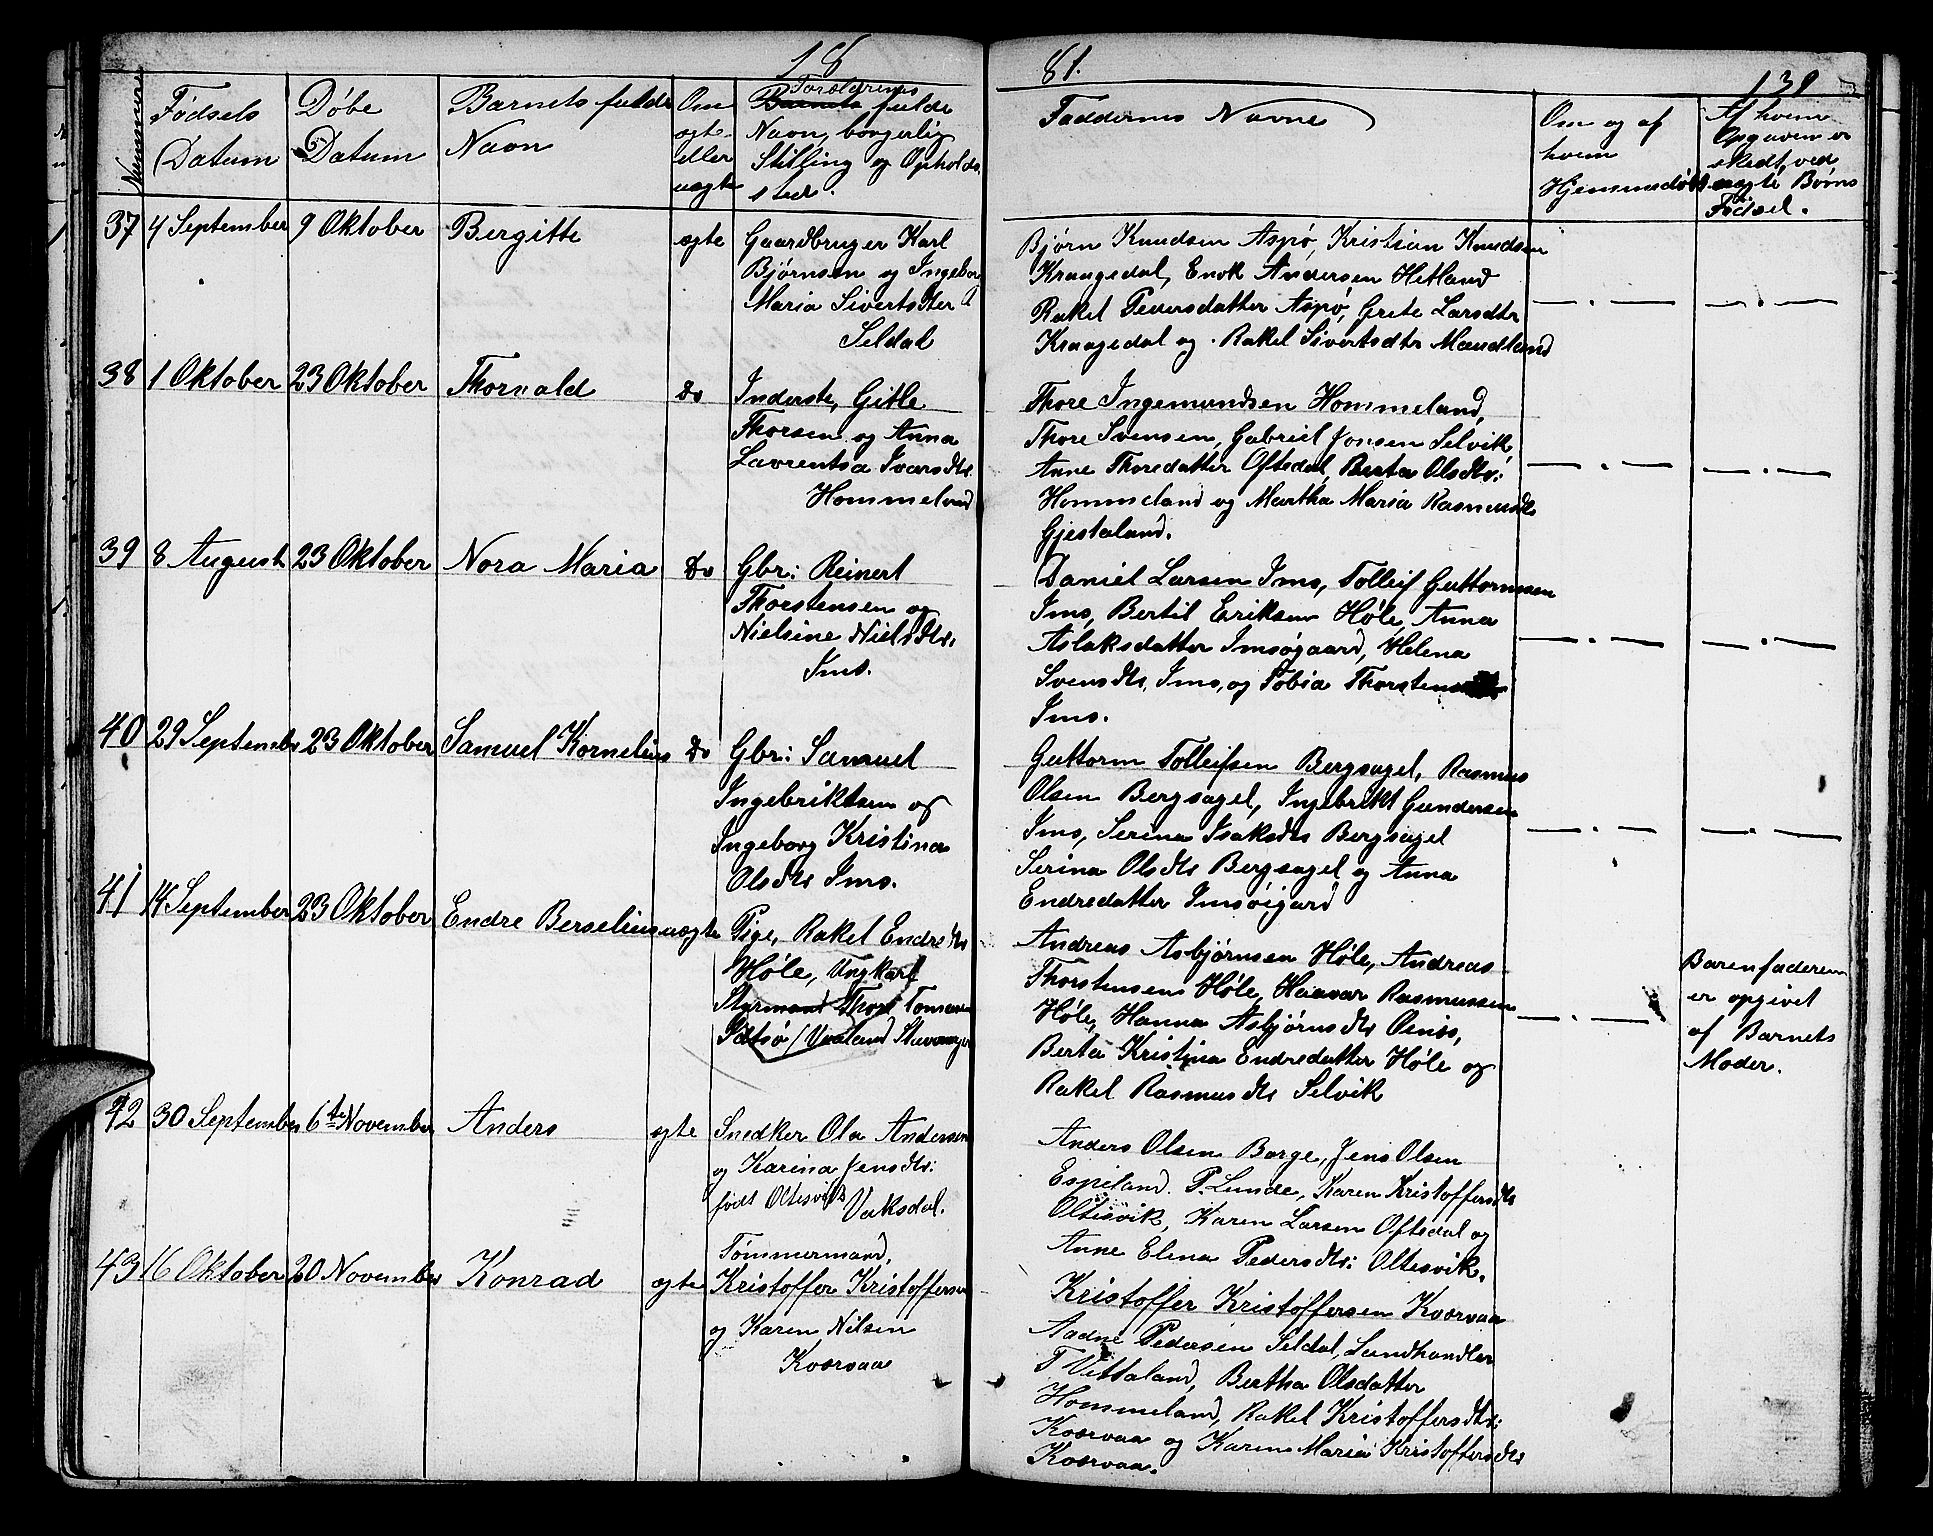 18 81.
139
Nummere
Fødsels
Datum
Døbe
Datum
Barnets fulde
Navn
Om
ægte
eller
uægte
Forældrenes
Barnets fulde
Navn, borgerlig
Stilling og Opholds
sted.
Faddernes Navne
Om og af
hvem
Hjemmedøbt
Af hvem
Opgaven er
skedt, ved
uægte Børns
Fødsel.
37 4 September 9 Oktober Bergitte ægte
Gaardbruger Karl
Bjørnsen og Ingeborg
Maria Sivertsdter
Seldal
Bjørn Knudsen Aspø, Kristian Knudsen
Kraagedal, Enok Andersen Hetland
Rakel Pedersdatter Aspø, Grete Larsdtr
Kraagedal og Rakel Sivertsdtr Maudland
38 1 Oktober 23 Oktober Thorvald Do
Inderste, Gitle
Thorsen og Anna
Lavrentsa Ivarsdtr
Hommeland
Thore Ingemundsen Hommeland,
Thore Svensen, Gabriel Jonsen Selvik,
Anne Thoredatter Oftedal, Berta Olsdtr:
Hommeland og Martha Maria Rasmusdtr
Gjestaland.
39 8 August 23 Oktober Nora Maria Do
Gbr: Reinert
Thorstensen og
Nielsine Nielsdtr:
Ims.
Daniel Larsen Ims, Tolleif Guttormsen
Ims, Bertil Eriksen Høle, Anna
Aslaksdatter Imsøgaard, Helena
Svensdtr, Ims, og Tobia
Ims.
40 29 Septembr 23 Oktober Samuel Kornelius Do
Gbr: Samuel
Ingebriktsen og
Ingeborg Kristina
Olsdtr Ims.
Guttorm Tolleifsen Bergsagel, Rasmus
Olsen Bergsagel, Ingebrikt Gundersen
Ims, Serina Isaksdtr Bergsagel
Serina Olsdtr Bergsagel og Anna
Endredatter Imsøigard
41 14 September 23 Oktober Endre Berselius uægte
Pige, Rakel Endredtr
Høle, Ungkarl
Styrmand Thore Tonnesen
Idsø / Vaaland Stavanger
Andreas Asbjørnsen Høle, Andreas
Thorstensen Høle, Haavar Rasmussen
Høle, Hanna Asbjørnsdtr Oenes,
Berta Kristina Endredatter Høle og
Rakel Rasmusdtr Selvik
Barenfaderen
er opgivet
af Barnets
Moder.
42 30 September 6te November Anders ægte
Snedker Ola Andersen
og Karina Jensdtr:
født Oltesvik Vaksdal.
Anders Olsen Borge, Jens Olsen
Espeland. P. Lunde, Karen Kristoffersdtr
Oltesvik, Karen Larsen Oftedal og
Anne Elena Pedersdtr: Oltesvik.
43 16 Oktober 20 November Konrad ægte
Tømmermand,
Kristoffer Kristoffersen
og Karen Nilsen
Kværvaa
Kristoffer Kristoffersen Kværvaa
Aadne Pedersen Seldal, Landhandler
T Vittaland, Bertha Olsdatter
Hommeland, Rakel Kristoffersdtr:
Kværvaa og Karen Maria Kristoffersdtr
Kværvaa.